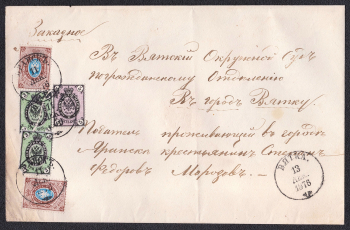 Заказное
Въ Вятскій Окружной Судъ
по гражданскому Отдѣленію
Въ городъ Вятку
Податель проживающій въ городѣ
Яранскѣ крестьянинъ Степанъ
Ѳедоровъ Морозовъ.
ВЯТКА
13
1876